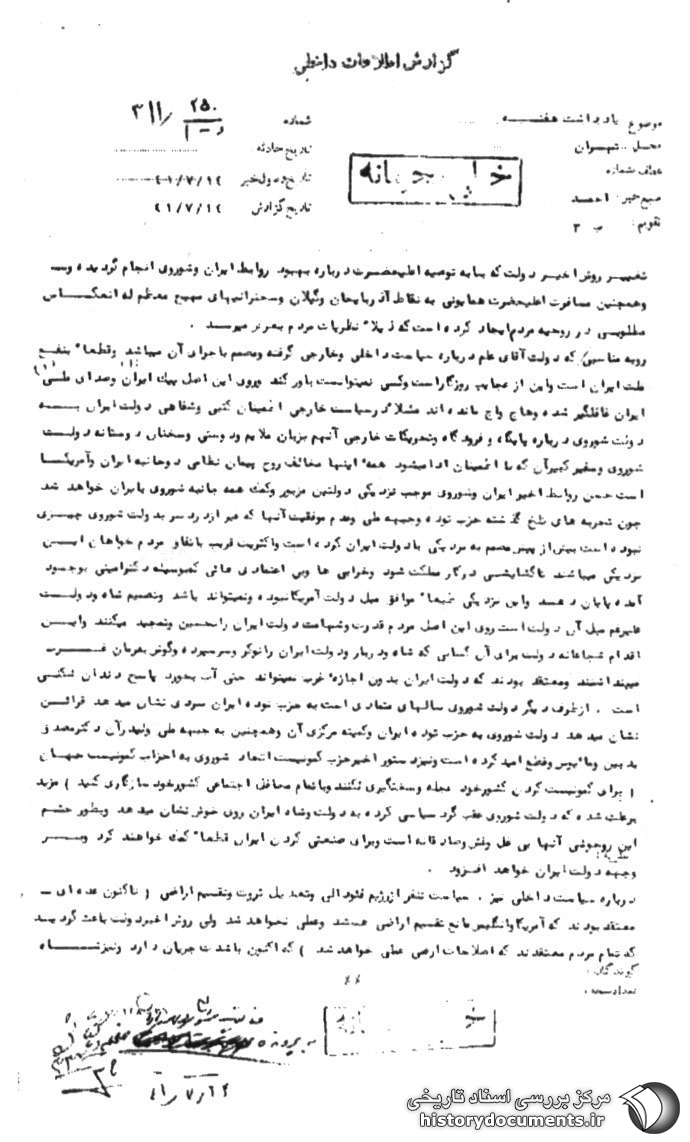 گزارش اطلاعات داخلی
موضوع یادداشت هفته
محل تهران
عطف شماره
منبع خبر احمد
تقویم ب ۳
شماره ۲۵۰ ۳۱۱/
تاریخ حادثه
تاریخ وصول خبر ۴۱/۷/۱۴
تاریخ گزارش ۴۱/۷/۱۴
خیلی محرمانه
تغییر روش اخیر دولت که بنا به توصیه اعلیحضرت درباره بهبود روابط ایران وشوروی انجام گردیده و
وهمچنین مسافرت اعلیحضرت همایونی به نقاط آذربایجان وگیلان وسخنرانیهای مهیج معظم له انعکاس
مطلوبی در روحیه مردم ایجاد کرده است که ذیلا" نظریات مردم بعرض میرسد .
رویه مناسبی که دولت آقای علم درباره سیاست داخلی وخارجی گرفته ومصمم باجرای آن میباشد وقطعا" بنفع
ملت ایران است واین از عجایب روزگار است وکسی نمیتوانست باور کند وروی این اصل پیک ایران وصدای ملی
ایران غافلگیر شده وهاج واج مانده اند مثلا" درسیاست خارجی اطمینان کتبی وشفاهی دولت ایران به
دولت شوروی درباره پایگاه و فرودگاه وتحریکات خارجی آنهم بزبان ملایم ودوستی وسخنان دوستانه دولت
شوروی وسفیر کبیرآن که با اطمینان ادا میشود همه اینها مخالف روح پیمان نظامی دوجانبه ایران وآمریکا
است حسن روابط اخیر ایران وشوروی موجب نزدیکی دولتین مزبور وکمک همه جانبه شوروی بایران خواهد شد
چون تجربه های تلخ گذشته حزب توده وجبهه ملی وعدم موفقیت آنها که غیر از دردسر بدولت شوروی چیزی
نبوده است بیش از پیش مصمم به نزدیکی با دولت ایران کرده است واکثریت قریب باتفاق مردم خواهان این
نزدیکی میباشند تا گشایشی درکار مملکت شود وخرابی ها وبی اعتمادی هائی که بوسیله دکترامینی بوجود
آمده پایان دهند واین نزدیکی طبعا" موافق میل دولت آمریکا نبوده ونمیتواند باشد وتصمیم شاه ودولت
علیرغم میل آن دولت است روی این اصل مردم قدرت وشهامت دولت ایران را تحسین وتمجید میکنند واین
اقدام شجاعانه دولت برای آن کسانی که شاه ودربار ودولت ایران را نوکر وسرسپرده وگوش بفرمان غرب
میپنداشتند ومعتقد بودند که دولت ایران بدون اجازه غرب نمیتواند حتی آب بخورد پاسخ دندان شکنی
است . از طرف دیگر دولت شوروی سالهای متمادی است به حزب توده ایران سردی نشان میدهد قرائن
نشان میدهد دولت شوروی به حزب توده ایران وکمیته مرکزی آن وهمچنین به جبهه ملی ولیدرآن دکترمصدق
بدبین ومأیوس وقطع امید کرده است ونیز دستور اخیر حزب کمونیست اتحاد شوروی به احزاب کمونیست جهان
( برای کمونیست کردن کشورخود عجله وسختگیری نکنند وباتمام محافل اجتماعی کشورخود سازگاری کنید ) مزید
برعلت شده که دولت شوروی عقب گرد سیاسی کرده به دولت وشاه ایران روی خوش نشان میدهد وبطور حتم
این روجوشی آنها بی غل وغش وصادقانه است وبرای صنعتی کردن ایران قطعا" کمک خواهند کرد وبر
وجهه دولت ایران خواهد افزود .
درباره سیاست داخلی نیز . سیاست تنفر از رژیم فئودالی وتعدیل ثروت وتقسیم اراضی ( تاکنون عده ای
معتقد بودند که آمریکا وانگلیس مانع تقسیم اراضی هستند وعملی نخواهد شد ولی روش اخیر دولت باعث گردید
که تمام مردم معتقدند که اصلاحات ارضی عملی خواهد شد ) که اکنون باشدت جریان دارد ونیز شاه
گیرندگان :
تعداد نسخه :
به پرونده
۴۱/۷/۲۴
مرکز بررسی اسناد تاریخی
historydocuments.ir